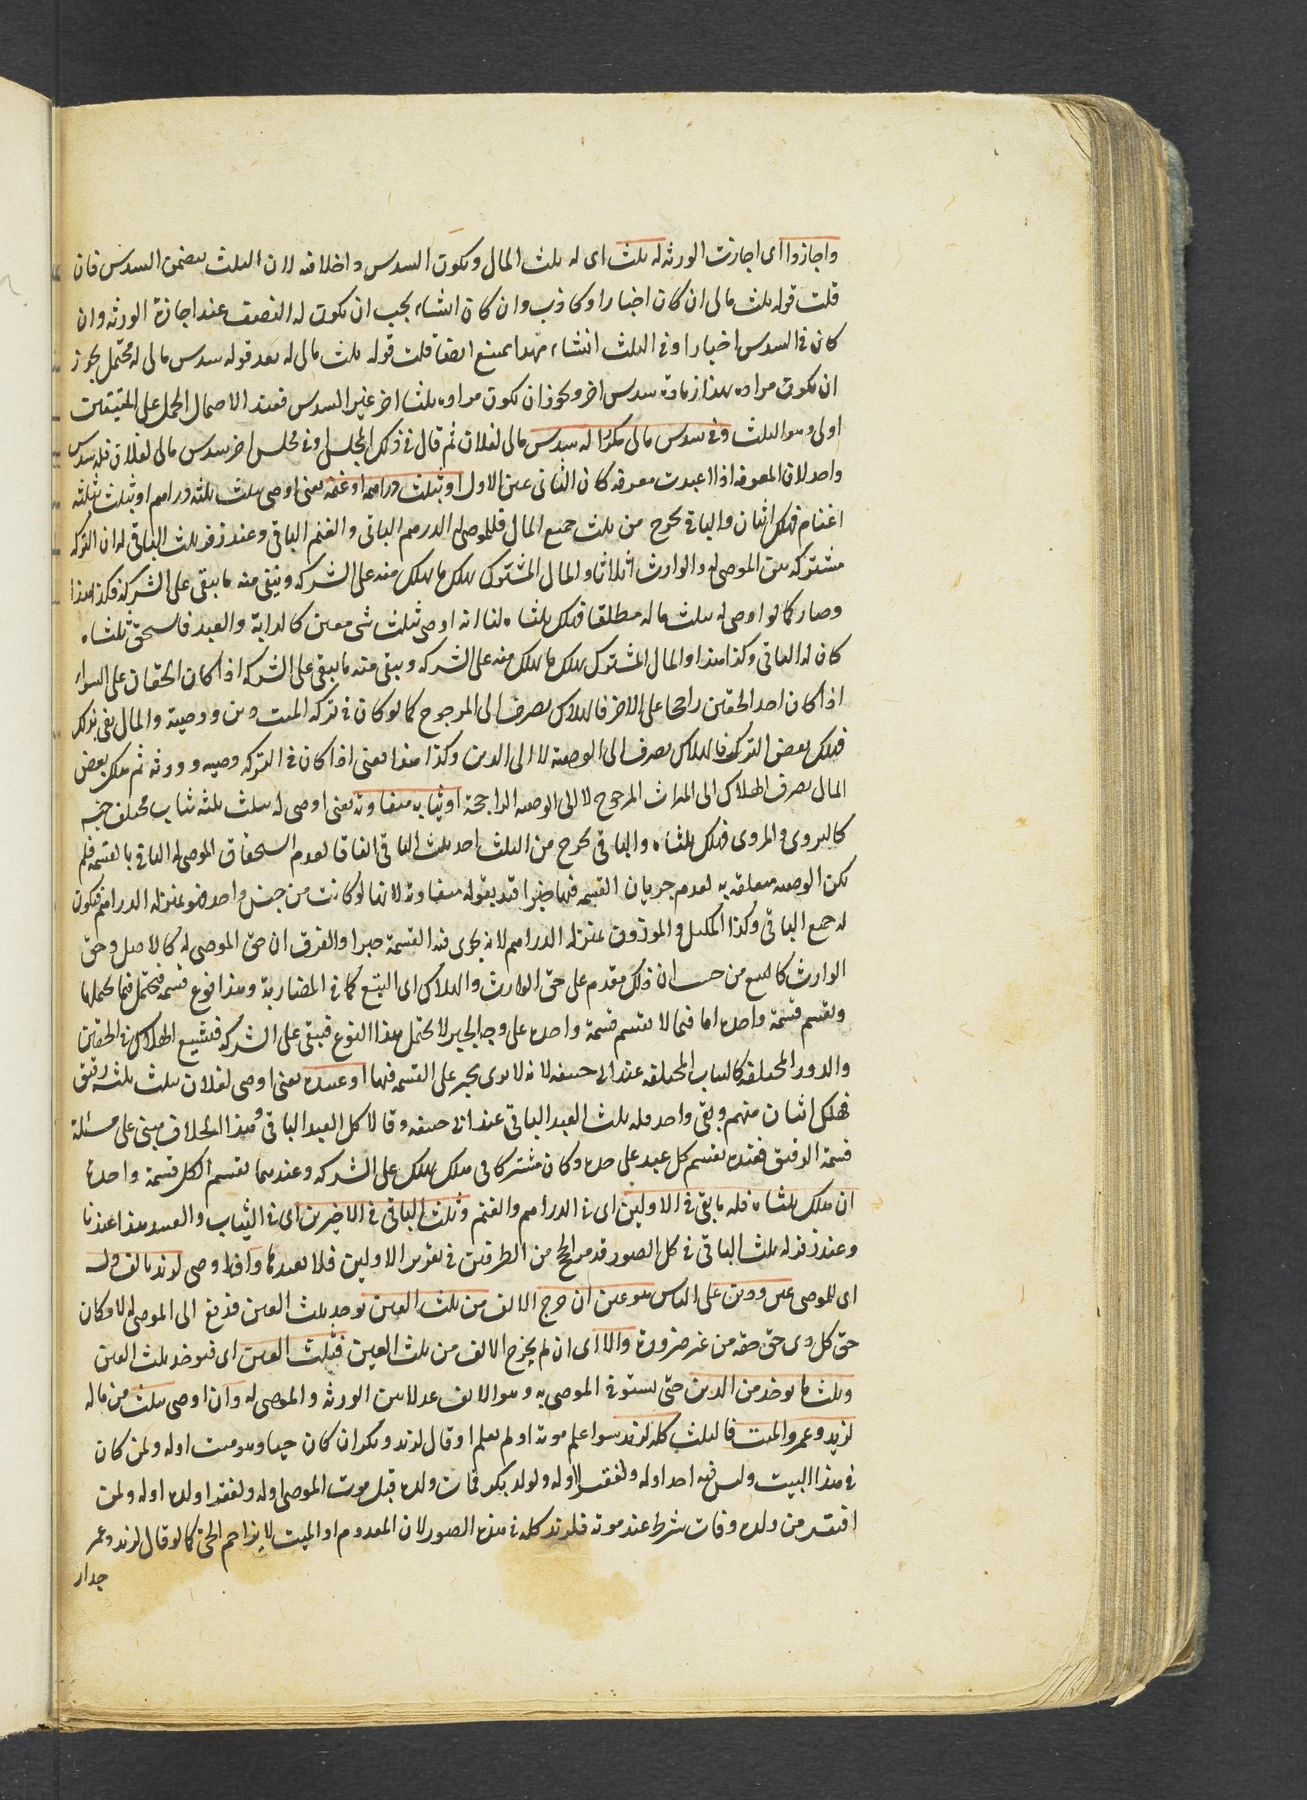 واجازوا اى اجازت الورثة له ثلث اى له ثلث المال ويكون السدس داخلا فيه لان الثلث يتضمن السدس فان
قلت قوله ثلث مالى ان كان اخبارا وكاذب وان كان انشاء يجب ان يكون له النصف عند اجازة الورثة وان
كان فى السدس اخبارا وفى الثلث انشاء فهذا ممتنع ايضا قلت قوله ثلث مالى له بعد قوله سدس مالى له محتمل يجوز
ان يكون مراده بهذا زيادة سدس اخر ويجوز ان يكون مراده ثلثا اخر غير السدس فعند الاحتمال الحمل على المتيقن
اولى وهو الثلث وفى سدس مالى مكررا له سدس مالى لفلان ثم قال فى ذلك المجلس او فى مجلس اخر سدس مالى لفلان فله سدس
واحد لان المعرفة اذا اعيدت معرفة كان الثانى عين الاول او بثلث دراهمه او غنمه يعنى اوصى بثلث ثلثة دراهم او بثلث ثلثة
اغنام فهلك اثنان والباقى يخرج من ثلث جميع المال فللموصى له الدرهم الباقى والغنم الباقى وعند زفر ثلث الباقى له ان التركة
مشتركة بين الموصى له والوارث اثلاثا والمال المشترك يهلك ما يهلك منه على الشركة ويبقى منه ما يبقى على الشركة فكذا هذا
وصار كما لو اوصى له بثلث ماله مطلقا فهلك ثلثاه لنا انه اوصى بثلث شى معين كالدابة والعبد فاستحق ثلثاه
كان له الباقى وكذا هذا والمال المشترك يهلك ما يهلك منه على الشركة ويبقى منه ما يبقى على الشركة اذا كان الحقان على السواء
اذا كان احد الحقين راجحا على الاخر فالهلاك يصرف الى المرجوح كما لو كان فى تركة الميت دين ووصية والمال يفى بذلك
فهلك بعض التركة فالهلاك يصرف الى الوصية لا الى الدين وكذا هذا يعنى اذا كان فى التركة وصية وورثة ثم هلك بعض
المال يصرف الهلاك الى الميراث المرجوح لا الى الوصية الراجحة او ثيابه متفاوتة يعنى اوصى له بثلث ثلثة ثياب مختلف جنسه
كالهروى والمروى فهلك ثلثاه والباقى يخرج من الثلث اخذ ثلث الباقى اتفاقا لعدم استحقاق الموصى له الباقى بالقسمة فلم
تكن الوصية متعلقة به لعدم جريان القسمة فيها جبرا قيد بقوله متفاوتة لانها لو كانت من جنس واحد فهو بمنزلة الدراهم فيكون
له جميع الباقى وكذا المكيل والموزون بمنزلة الدراهم لانه يجرى فيه القسمة جبرا والفرق ان حق الموصى له كالاصل وحق
الوارث كالتبع من حيث ان ذلك مقدم على حق الوارث والهلاك الى التبع كما فى المضاربة وهذا نوع قسمة فيحتمل فيما يحتملها
ويقسم قسمة واحدة اما فيما لا يقسم قسمة واحدة على وجه الجبر لا يحتمل هذا النوع فيبقى على الشركة فيشيع الهلاك فى الحقين
والدور المختلفة كالثياب المختلفة عند ابى حنيفة لانه لا يرى يجبر على القسمة فيها او عبيده يعنى اوصى لفلان بثلث ثلثة رقيق
فهلك اثنان منهم وبقى واحد فله ثلث العبد الباقى عند ابى حنيفة وقالا كل العبد الباقى وهذا الخلاف مبنى على مسئلة
قسمة الرقيق فعنده يقسم كل عبد على حدة وكان مشتركا فى هلك يهلك على الشركة وعندهما يقسم الكل قسمة واحدة
ان هلك ثلثاه فله ما بقى فى الاولين اى فى الدراهم والغنم وثلث الباقى فى الاخيرين اى فى الثياب والعبيد هذا عندنا
وعند زفر له ثلث الباقى فى كل الصور قد مر الحجج من الطرفين فى تقرير الاولين فلا نعيدها واذا اوصى لزيد بالف وله
اى للموصى عين ودين على الناس هو عين ان خرج الالف من ثلث العين يوجد ثلث العين فدفع الى الموصى له لا وكان
حق كل ذى حق حقه من غير ضرورة والا اى ان لم يخرج الالف من ثلث العين فثلث العين اى فيوخذ ثلث العين
وثلث ما يوخذ من الدين حتى يستوفى الموصى به وهو الالف عدلا بين الورثة والموصى له وان اوصى بثلث من ماله
لزيد وعمرو الميت فالثلث كله لزيد سوا علم موته او لم يعلم او قال لزيد وبكر ان كان حيا وهو ميت او له ولمن كان
فى هذا البيت وليس فيه احد او له ولعقبه او له ولولد بكر فمات ولده قبل موت الموصى او له ولفقراء ولده او له ولمن
افتقر من ولده وفات شرط عند موته فلزيد كله فى هذه الصور لان المعدوم او الميت لا يزاحم الحى كما لو قال لزيد وعمر
جدار